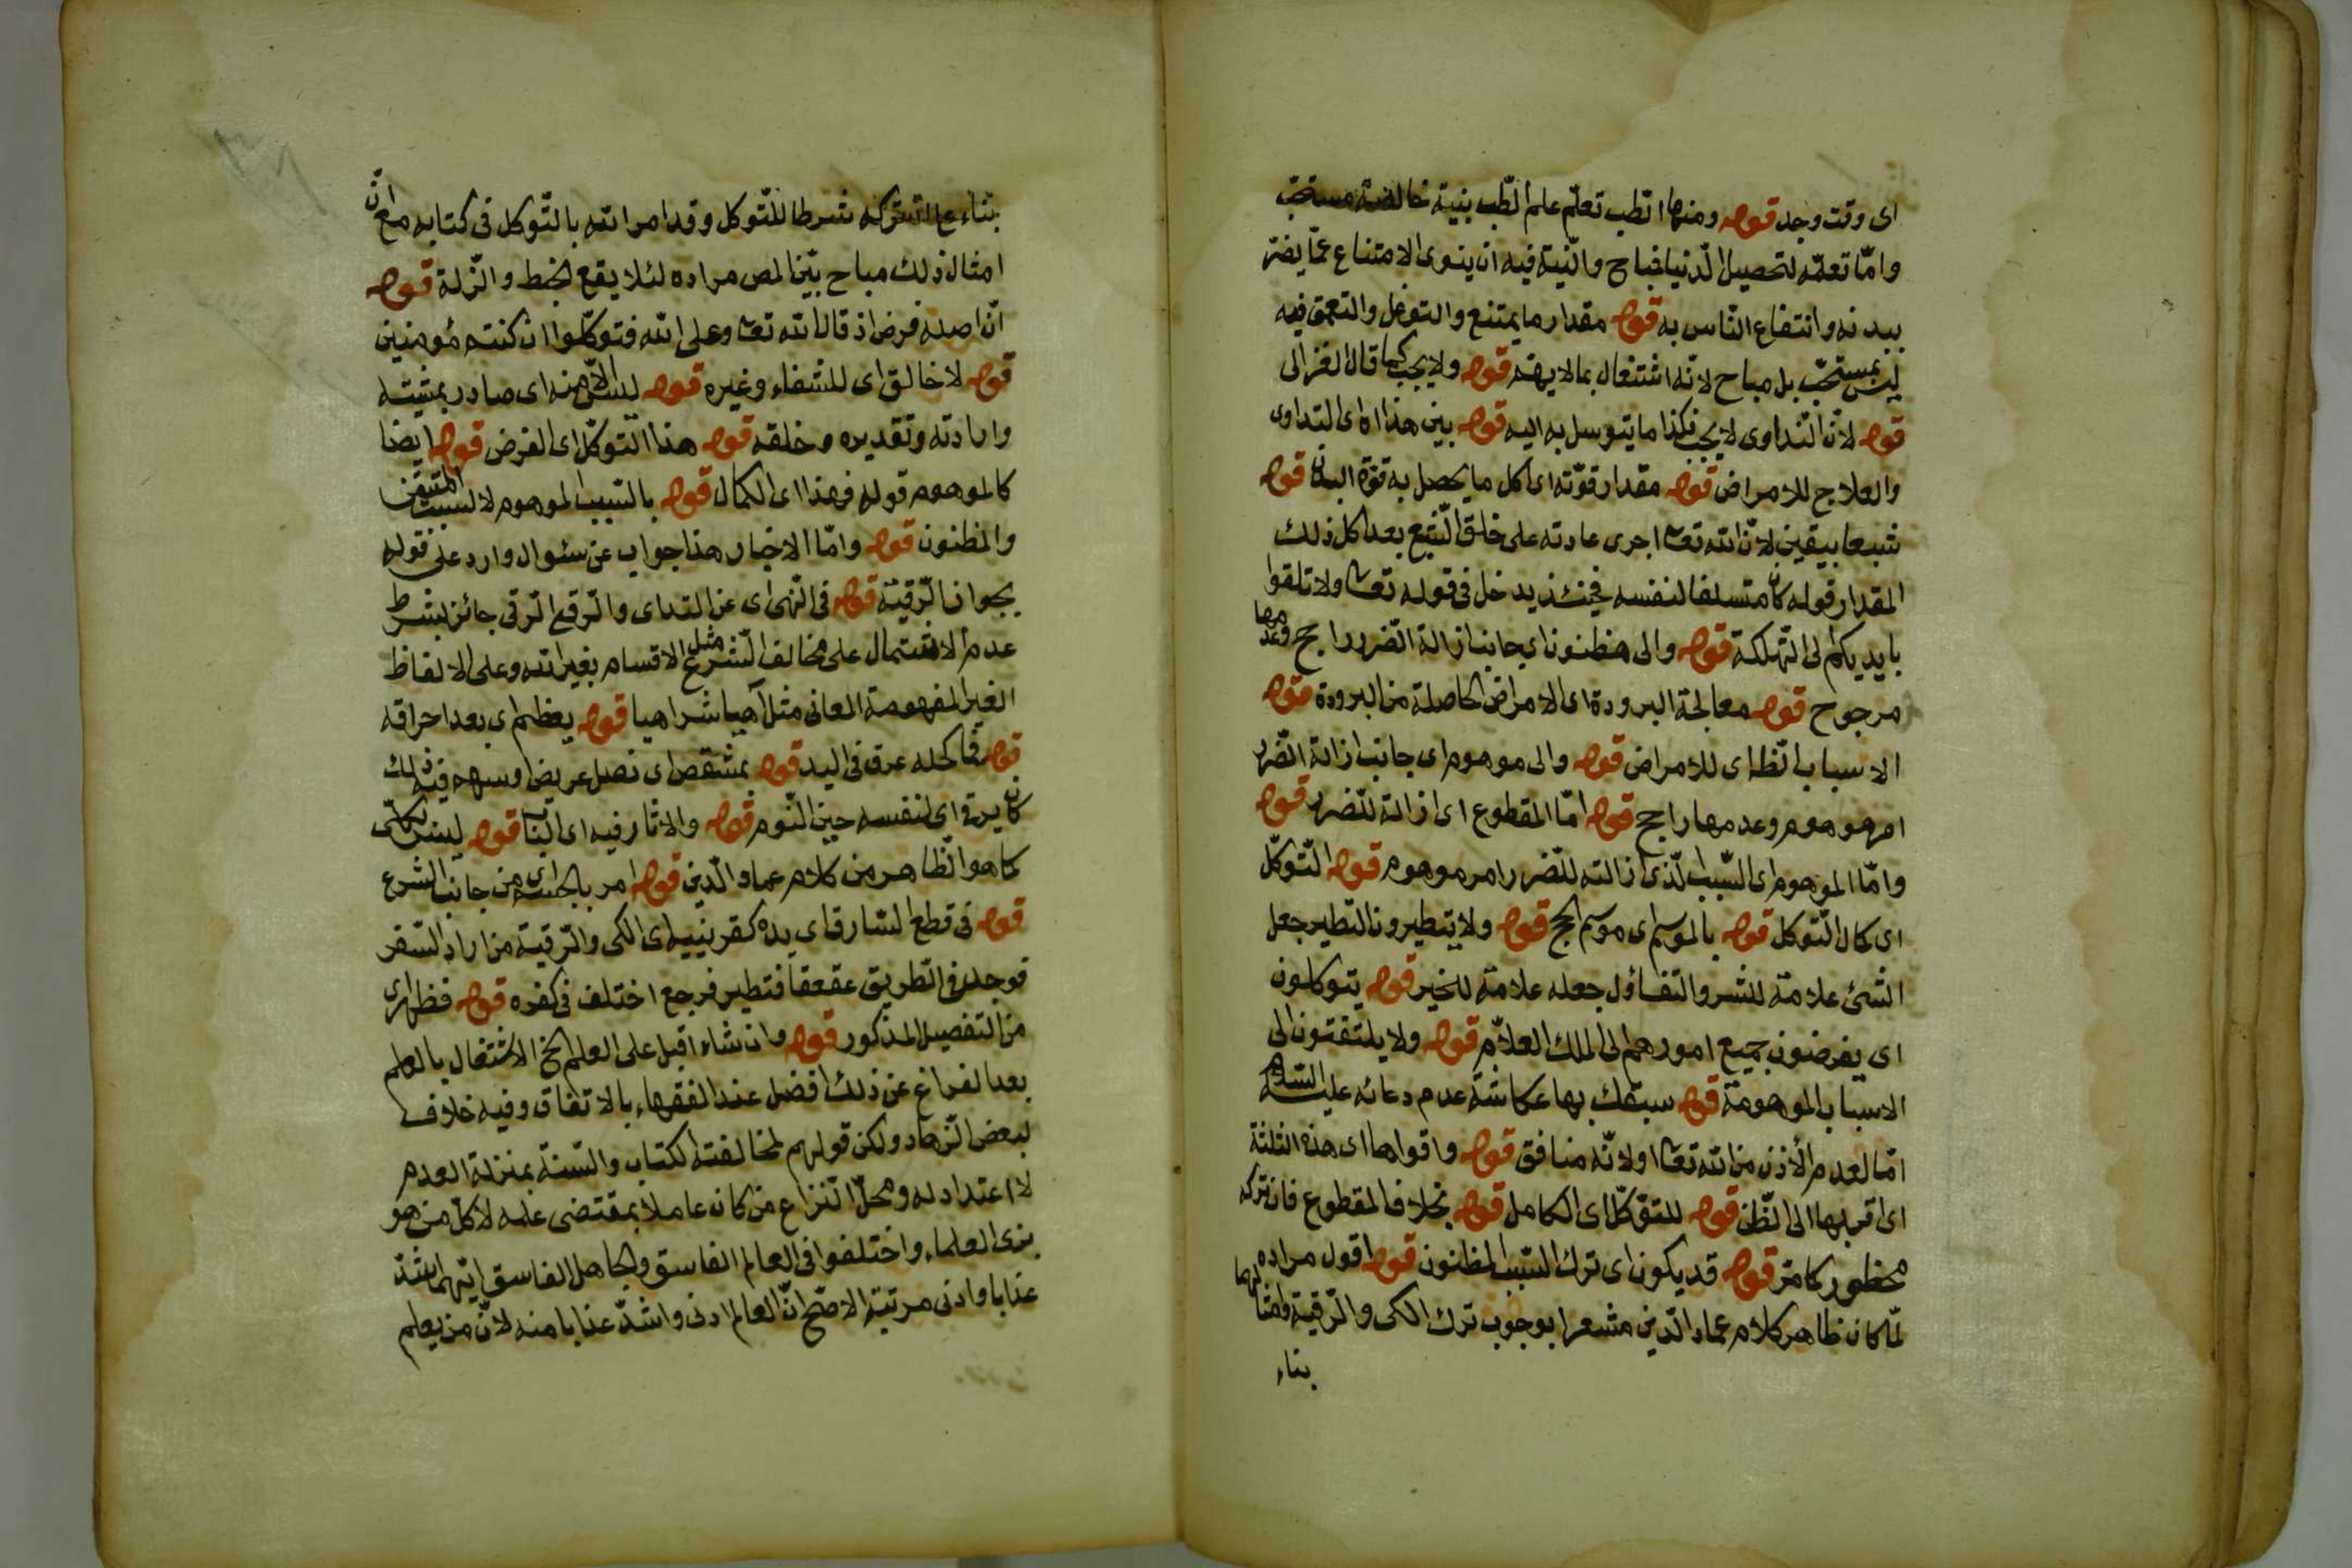 اى وقت وجد قوله ومنها الطب تعلّم علم الطب بنية خالصة مستحبّ
وامّا تعلمه لتحصيل الدنيا فمباح والنّية فيه ان ينوى الامتناع عمّا يضر
ببدنه وانتفاع النّاس به قوله مقدار ما يمتنع والتوغل والتعمق فيه
ليس بمستحبّ بل مباح لانّه اشتغال بما لا يهمّه قوله ولا يجب كما قال الغزالى
قوله لانّ التداوى لا يجب فكذا ما يتوسل به اليه قوله بين هذا اى التداوى
والعلاج للامراض قوله مقدار قوّته اى اكل ما يحصل به قوّة البدن قوله
شبعا بيقين لانّ الله تعا اجرى عادته على خلق الشّبع بعد اكل ذلك
المقدار قوله كان متسلفا لنفسه فحينئذ يدخل فى قوله تعا ولا تلقوا
بايديكم الى التّهلكة قوله والى مظنون اى جانب ازالة الضّرر راجح وعدمها
مرجوح قوله معالجة البرودة اى الامراض الحاصلة من البرودة قوله
الاسباب الظ اى للامراض قوله والى موهوم اى جانب ازالة الضّرر
امر موهوم وعدمها راجح قوله امّا المقطوع اى ازالته للضرر قوله
وامّا الموهوم اى السّبب الّذى ازالته للضّرر امر موهوم قوله التّوكّل
اى كمال التّوكل قوله بالموسم اى موسم الحج قوله ولا يتطيرون التطير جعل
الشئ علامة للشر والتفاؤل جعله علامة للخير قوله يتوكلون
اى يفوضون جميع امورهم الى الملك العلاّم قوله ولا يلتفتون الى
الاسباب الموهومة قوله سبقك بها عكاشة عدم دعائه عليه السلام
امّا لعدم الأذن من الله تعا او لانّه منافق قوله واقواها اى هذه الثلثة
اى اقربها الى الظّن قوله للتوكّل اى الكامل قوله بخلاف المقطوع فان تركه
محظور كما مرّ قوله قد يكون اى ترك السّبب المظنون قوله اقول مراده
لمّا كان ظاهر كلام عماد الدّين مشعرا بوجوب ترك الكى والرّقية وامثالهما
بناء
بناء على ان تركه شرطا للتّوكل وقد امر الله بالتّوكل فى كتابه مع انّ
امثال ذلك مباح بيّن المص مراده لئلا يقع الخبط والزّلة قوله
انّ اصله فرض اذ قال الله تعا وعلى الله فتوكّلوا ان كنتم مؤمنين
قوله لا خالق اى للشفاء وغيره قوله ليس الاّ منه اى صادر بمشيته
وارادته وتقديره وخلقه قوله هذا التوكّل اى الفرض قوله ايضا
كالموهوم قوله فهذا اى الكمال قوله بالسّبب الموهوم لا السبب المتيقن
والمظنون قوله وامّا الاخبار هذا جواب عن سئوال وارد على قوله
بجواز الرّقية قوله فى النّهى اى عن التداى والرّقى الرّقى جائز بشرط
عدم الاشتمال على مخالف الشّرع مثل الاقسام بغير الله وعلى الالفاظ
الغير المفهومة المعانى مثل آهيا شراهيا قوله بعظم اى بعد احراقه
قوله فى اكحله عرق فى اليد قوله بمشقص اى نصل عريض او سهم فيه ذلك
كان يرق اى لنفسه حين النّوم قوله والاثار فيه اى الباب قوله ليس بكلّى
كما هو الظّاهر من كلام عماد الدّين قوله امر بالحسم اى من جانب الشرع
قوله فى قطع السّارق اى يده كقرينيه اى الكى والرّقية من اراد السّفر
فوجد فى الطّريق عقعقا فتطير فرجع اختلف فى كفره قوله فظهر اى
من التفصيل المذكور قوله وان شاء اقبل على العلم الخ الاشتغال بالعلم
بعد الفراغ عن ذلك افضل عند الفقهاء بالاتفاق وفيه خلاف
لبعض الزّهاد ولكن قولهم لمخالفته الكتاب والسّنة بمنزلة العدم
لا اعتداد له ومحلّ النّزاع من كان عاملا بمقتضى علمه لا كلّ من هو
بزى العلماء واختلفوا فى العالم الفاسق والجاهل الفاسق ايّهما اشدّ
عذابا وادنى مرتبة الاصّح انّ العالم ادنى واشدّ عذابا منه لانّ من يعلم